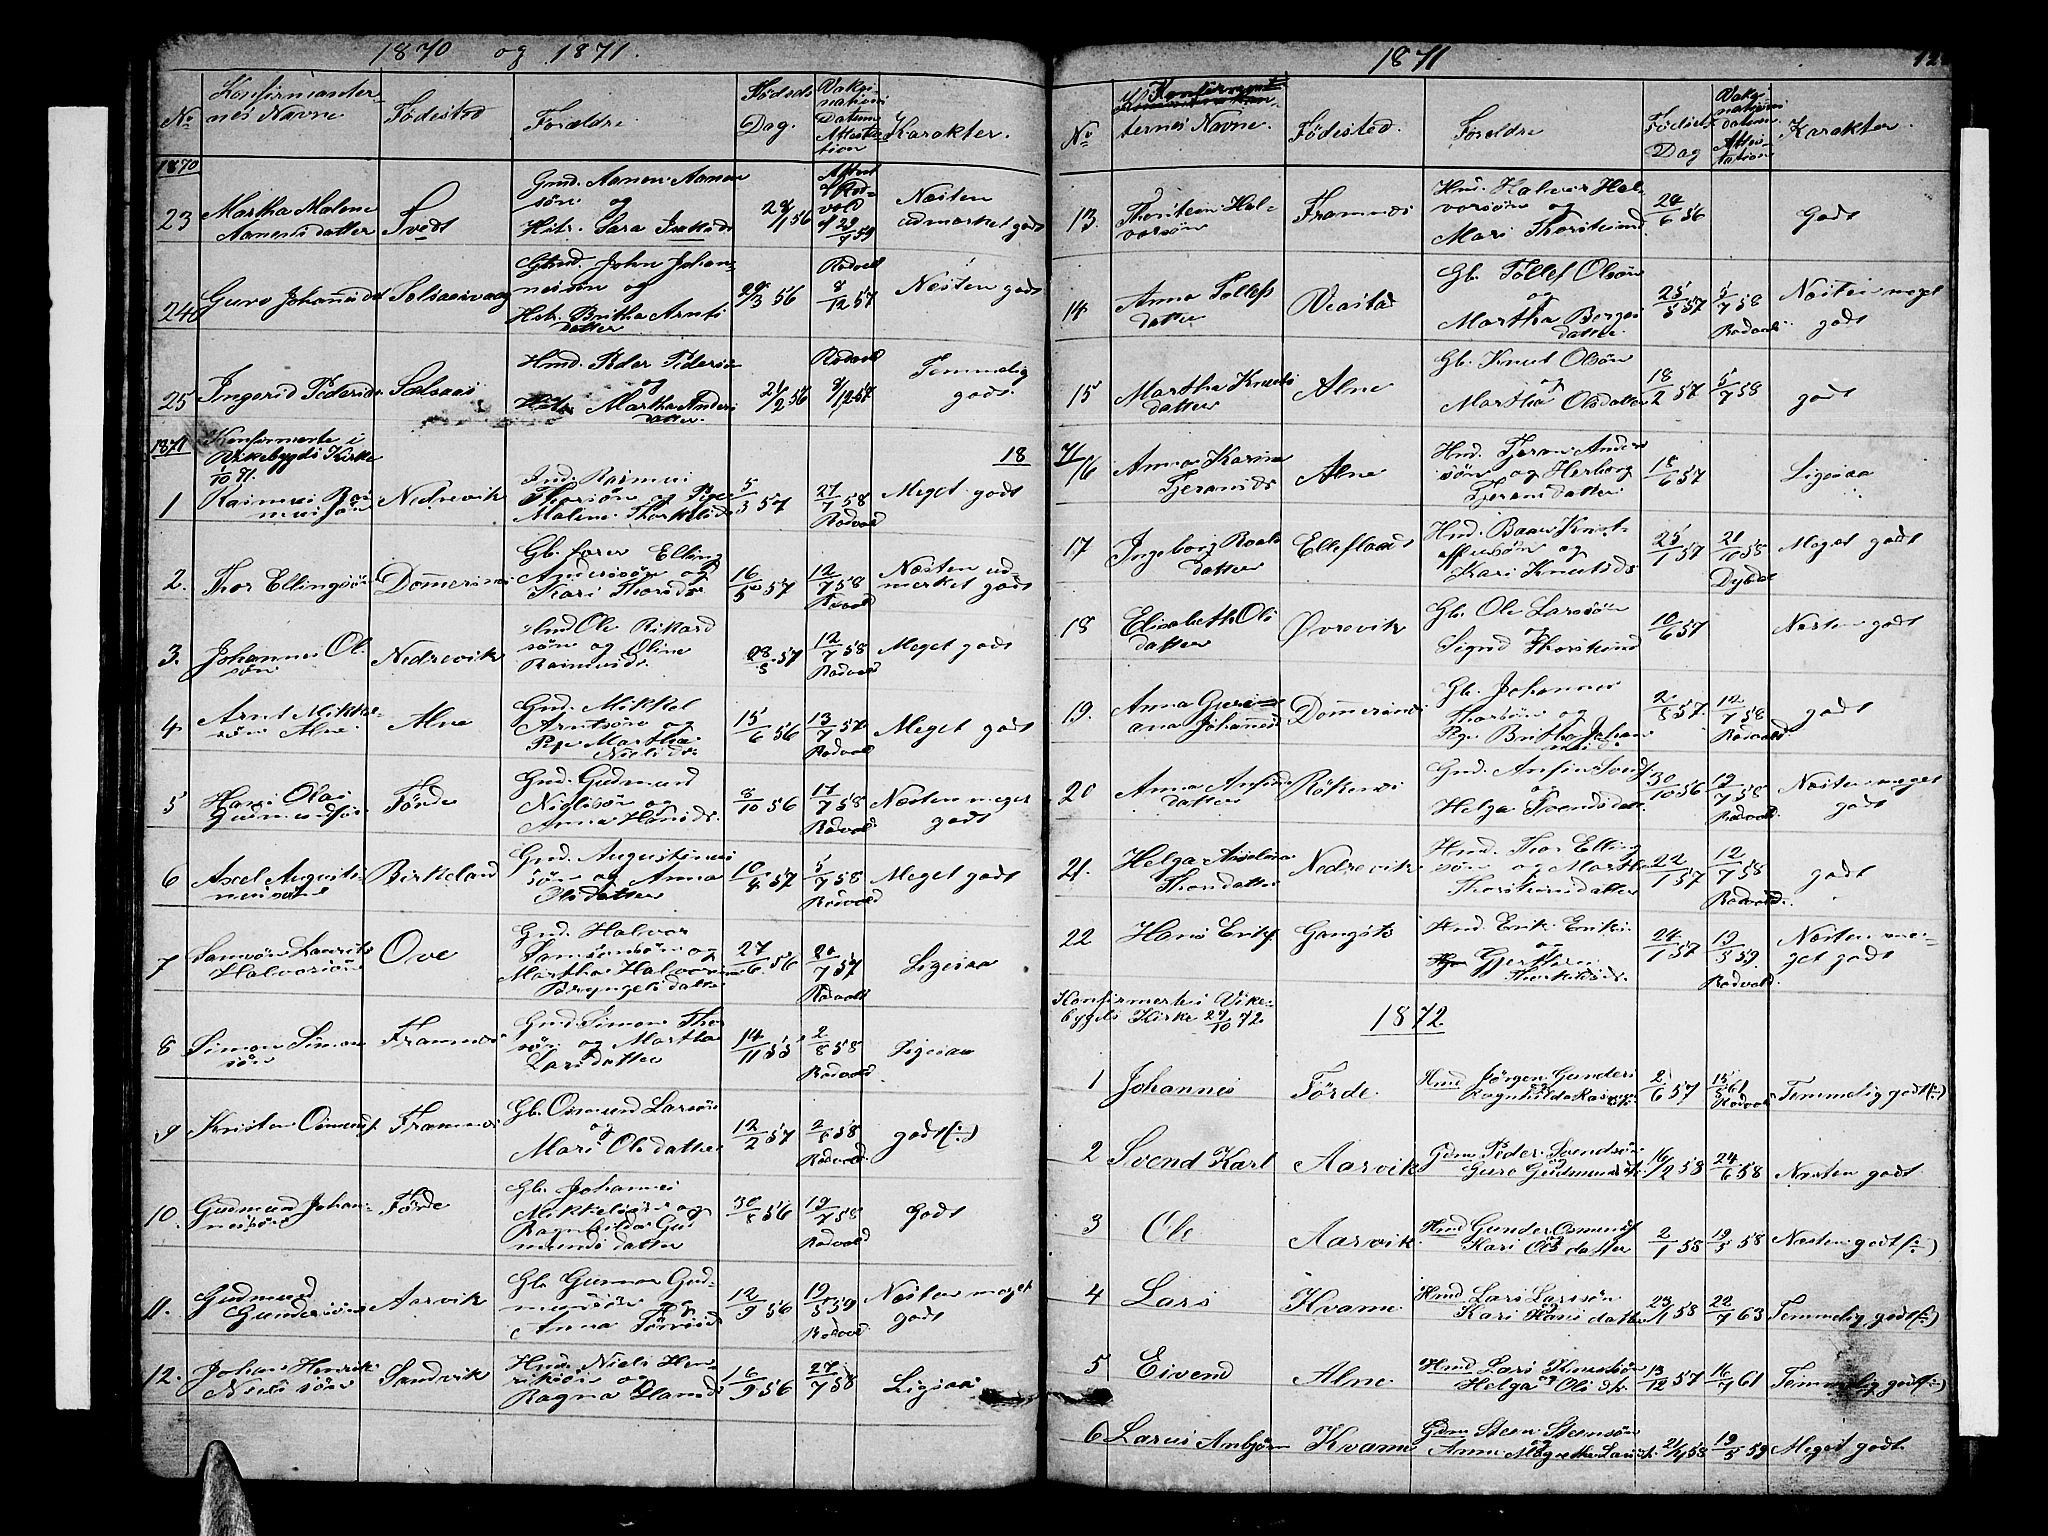 1870 og 1871.
No
Konfirmander-
nes Navne
Fødested
Forældre
Fødsels
Dag.
Vakci-
nations
Datum
Attesta-
tion
Karakter.
1870
23
Martha Malene
Aanensdatter
Svedt
Gmd. Aanen Aanen
søn og
Hstr. Sara
56
Attest
Rodvold
59
Næsten
udmærket godt
24
Guro Johannesd
John Johan-
nesøn og
Hstr. Britha Arnts
datter
3 56
Rodvold
8/12 57
Næsten godt
25
Ingerid Pedersd
Hmd. Peder Pedersøn
og
Martha Anders
datter
2 56
Rodvold
12 57
Temmelig
godt.
1871
Konfirmerte i
Vikebygds Kirke
1/10 71.
18
1
Rasmus Ras
mussøn
Nedrevik
Rasmus
Thorsøn og Pige
Malene Thorkilsd
5/3 57
27/7 58
Rodvold
Meget godt
2.
Thor Ellingsøn
Dommersnes
Gb. Elling
Anderssøn og
Kari Thorsdr
16/5 57
12/7 58
Rodvold
Næsten ud-
merket godt
3.
Johannes Ol
søn
Nedrevik
Hmd Ole Rikard
søn og Oline
Rasmusdr
57
12/7 58
Rodvold
Meget godt
4
Arnt Mikkel
søn Alne
Alne
Gmd. Mikkel
Arntsøn og
Pige Martha
Nielsdr
15/6 56
13/7 57
Rodvold
Meget godt
5
Hans Olai
Gudmundsøn
Førde
Gmd. Gudmund
Nielssøn og
Anna Hansdr.
8/10 56
17/7 58
Rodvold
Næsten meget
godt
6
Axel Augusti-
nussøn
Birkeland
Gmd. Augustinus
søn og Anna
Olsdatter
10/8 57
5/7 58
Rodvold
Meget godt
7
Samson Laurits
Halvorsøn
Ove
Gmd. Halvor
Samsonsøn og
Martha Halvorine
Bryngelsdatter
27/6 56
20/7 57
Rodvold
Ligesaa
8
Simon Simon
søn
Framnes
Gmd. Simon Thor
søn og Martha
Larsdatter
14/11 55
2/8 58
Rodvold
Ligesaa
9
Kristen Osmunds
Framnes
Gb. Osmund Larsøn
og
Mari Olsdatter
12/2 57
2/8 58
Rodvold
godt (÷)
10.
Gudmund Johan-
nessøn
Førde
Gb. Johannes
Mikkelsøn og
Ragnhilda Gud
munds datter
30/8 56
19/7 58
Rodvold
Godt
11.
Gudmund
Gundersøn
Aarvik
Gb. Gunnar Gud-
mundsøn og
Anna
12/9 56
19/5 59
Rodvold
Næsten meget
godt
12.
Johan Henrik
Niels søn
Sandvik
Hmd. Niels Hen-
riksøn og
Ragna
16/9 56
27/7 58
Ligesaa
1871
No
Konfirmand
ternes Navne.
Fødested.
Foreldre
Fødsels
Dag
Vakci-
nations
datum
Attes-
tation
Karakter.
13.
Thorstein Hal-
vorsøn
Framnes
Hmd. Halvor Hal-
vorsøn og
Mari Thorsteinsd
28/6 56
Godt
14
Anna Tollefs
datter
Gb. Tollef Olsøn
og
Martha Borges
datter.
25/5 57
5/7 58
Rodvold.
Næsten meget
godt
15
Martha Knuts
datter
Alne
Gb. Knut Olsøn
og
Martha Olsdatter
18/2 57
5/7 58
godt
71
16
Anna Karine
Tjeransdr
Alne
Hmd. Tjeran Ander
søn og Herborg
Tjerans datter
18/6 57
Ligesaa
17
Ingeborg Roals
datter
Ellefland
Hmd. Baar Knut-
søn og
Kari Knutsdr
25/1 57
21/10 58
Dybdal
Meget godt
18
Elisabeth Ols
datter
Øvrevik
Gb. Ole Larssøn
og
Sigrid Thorsteinsd
10/6 57
Næsten godt
19.
Anna Guri-
ana Johannesd
Dommersnes
Gb. Johannes
Thorsøn og
Pige. Britha Johan
nesdr
2/8 57.
12/7 58
Rodvold
godt
20
Anna Ansfins
datter
Røkenes
Gmd. Ansfin Svends
og
Helga Svendsdat
30/10 56
12/7 58
Rodvold.
Næsten meget
godt
21.
Helga
Thorsdatter
Nedrevik
Hmd. Thor Elling
søn og Martha
Thorsteinsdatter
22/1 57
12/7 58
Rodvold.
godt
22
Hans Eriks
Hmd. Erik Eriks
og
Gjerthru
Thorkildsd.
24/1 57
19/5 59
Rodvold.
Næsten me-
get godt
Konfirmerte i Vike-
bygds Kirke 27/10 72.
1872.
1
Johannes
Førde.
Hmd Jørgen Gunders
og
Ragnhilda
2/6 57
15/5 61
Rodvold
Temmelig godt (÷)
2
Svend Karl
Aarvik
Gdm Peder Svendsøn
og
Guro Gudmundsdt.
16/2 58
24/6 58
Næsten godt
3
Ole
Aarvik
Hmd Gunder Osmunds
og
Kari Ols datter
2/1 58
19/5 58
Næsten godt (÷)
4
Lars
Kvame
Hmd Lars Larssøn
og
Kari Hans datter
23/1 58
22/7 63
Temmelig godt (÷)
5
Eivend
Alne
Hmd Lars Knutsøn
og
Helga Ols dt.
13/12 57
16/7 61
Temmelig godt (÷)
6
Larus Anbjørn
Kvame
Gdm Steen Steensøn
og
Anne Magrethe Larsdt.
58
19/5 59
Meget godt.